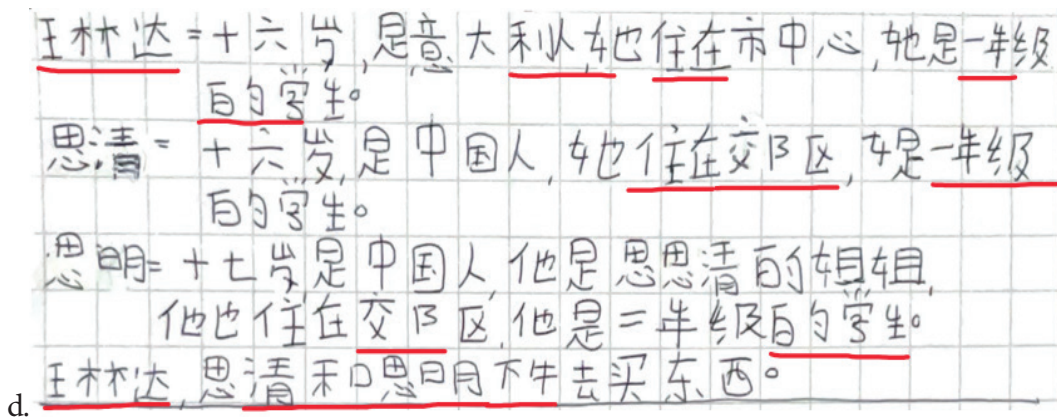 王林达=十六岁,是意大利人,她住在市中心,她是一年级
的学生。
思清=十六岁,是中国人,她住在交区,她是一年级
的学生。
思明=十七岁是中国人,他是思思清的姐姐,
他也住在交区,他是二年级的学生。
王林达,思清和思明下午去买东西。
d.